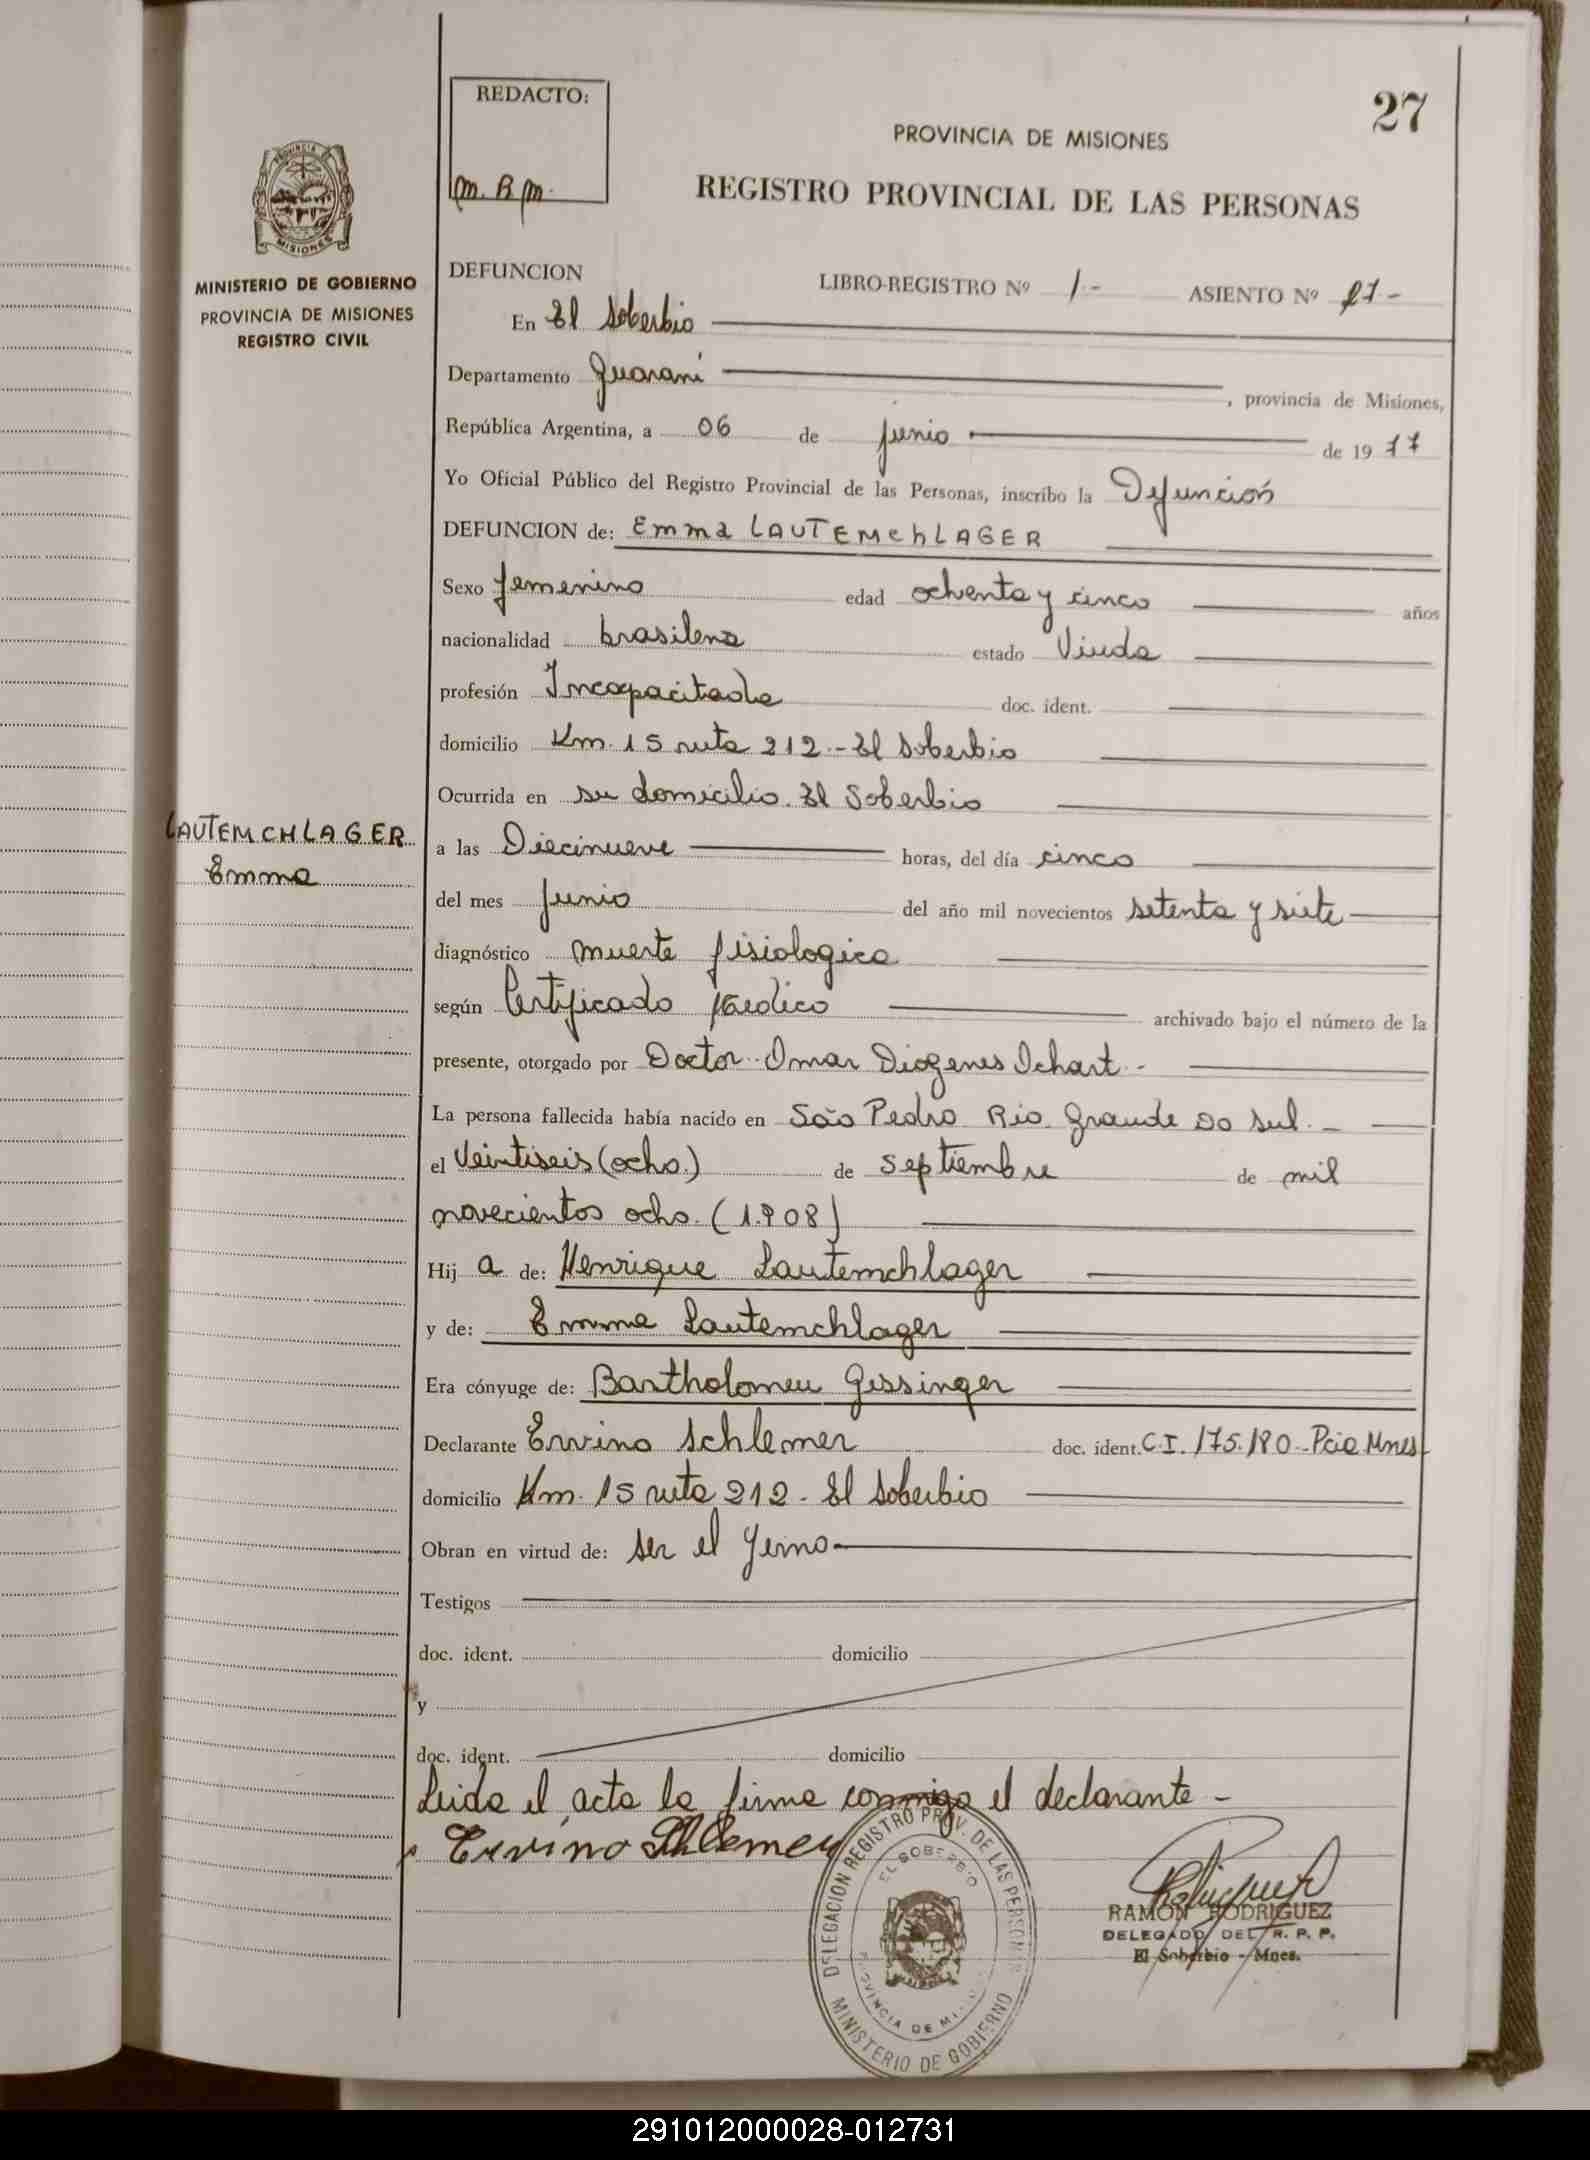 27
REDACTO:
m. R m.
PROVINCIA DE MISIONES
REGISTRO PROVINCIAL DE LAS PERSONAS
PROVINCIA
MISIONES
MINISTERIO DE GOBIERNO
PROVINCIA DE MISIONES
REGISTRO CIVIL
DEFUNCION LIBRO-REGISTRO Nº 1- ASIENTO Nº 27-
En El Soberbio
Departamento Guaraní, provincia de Misiones,
República Argentina, a 06 de junio de 1977
Yo Oficial Público del Registro Provincial de las Personas, inscribo la Defunción
DEFUNCION de: Emma LAUTEMChLAGER
Sexo femenino edad ochenta y cinco años
nacionalidad brasilena estado Viuda
profesión Incapacitada doc. ident.
domicilio Km. 15 ruta 212.- El Soberbio
Ocurrida en su domicilio. El Soberbio
LAUTEMCHLAGER
Emma
a las Diecinueve horas, del día cinco
del mes Junio del año mil novecientos setenta y siete
diagnóstico muerte fisiologica
según Certificado Medico archivado bajo el número de la
presente, otorgado por Doctor Omar Diogenes Ichart.-
La persona fallecida había nacido en São Pedro Rio Grande Do sul.-
el Veintiseis (ocho.) de septiembre de mil
novecientos ocho. (1.908)
Hij a de: Henrique Lautemchlager
y de: Emma Lautemchlager
Era cónyuge de: Bartholomeu Gessinger
Declarante Ervino Schlemer doc. ident. C.I. 175.180-Pcia Mnes
domicilio Km. 15 ruta 212- El Soberbio
Obran en virtud de: ser el yerno
Testigos
doc. ident. domicilio
y
doc. ident. domicilio
Leida el acta la firma conmigo el declarante -
Ervino Schlemer
DELEGACION REGISTRO PROV. DE LAS PERSONAS
EL SOBERBIO
PROVINCIA DE MISIONES
MINISTERIO DE GOBIERNO
Rodriguez R
RAMON RODRIGUEZ
DELEGADO DEL R. P. P.
El Soberbio - Mnes.
291012000028-012731